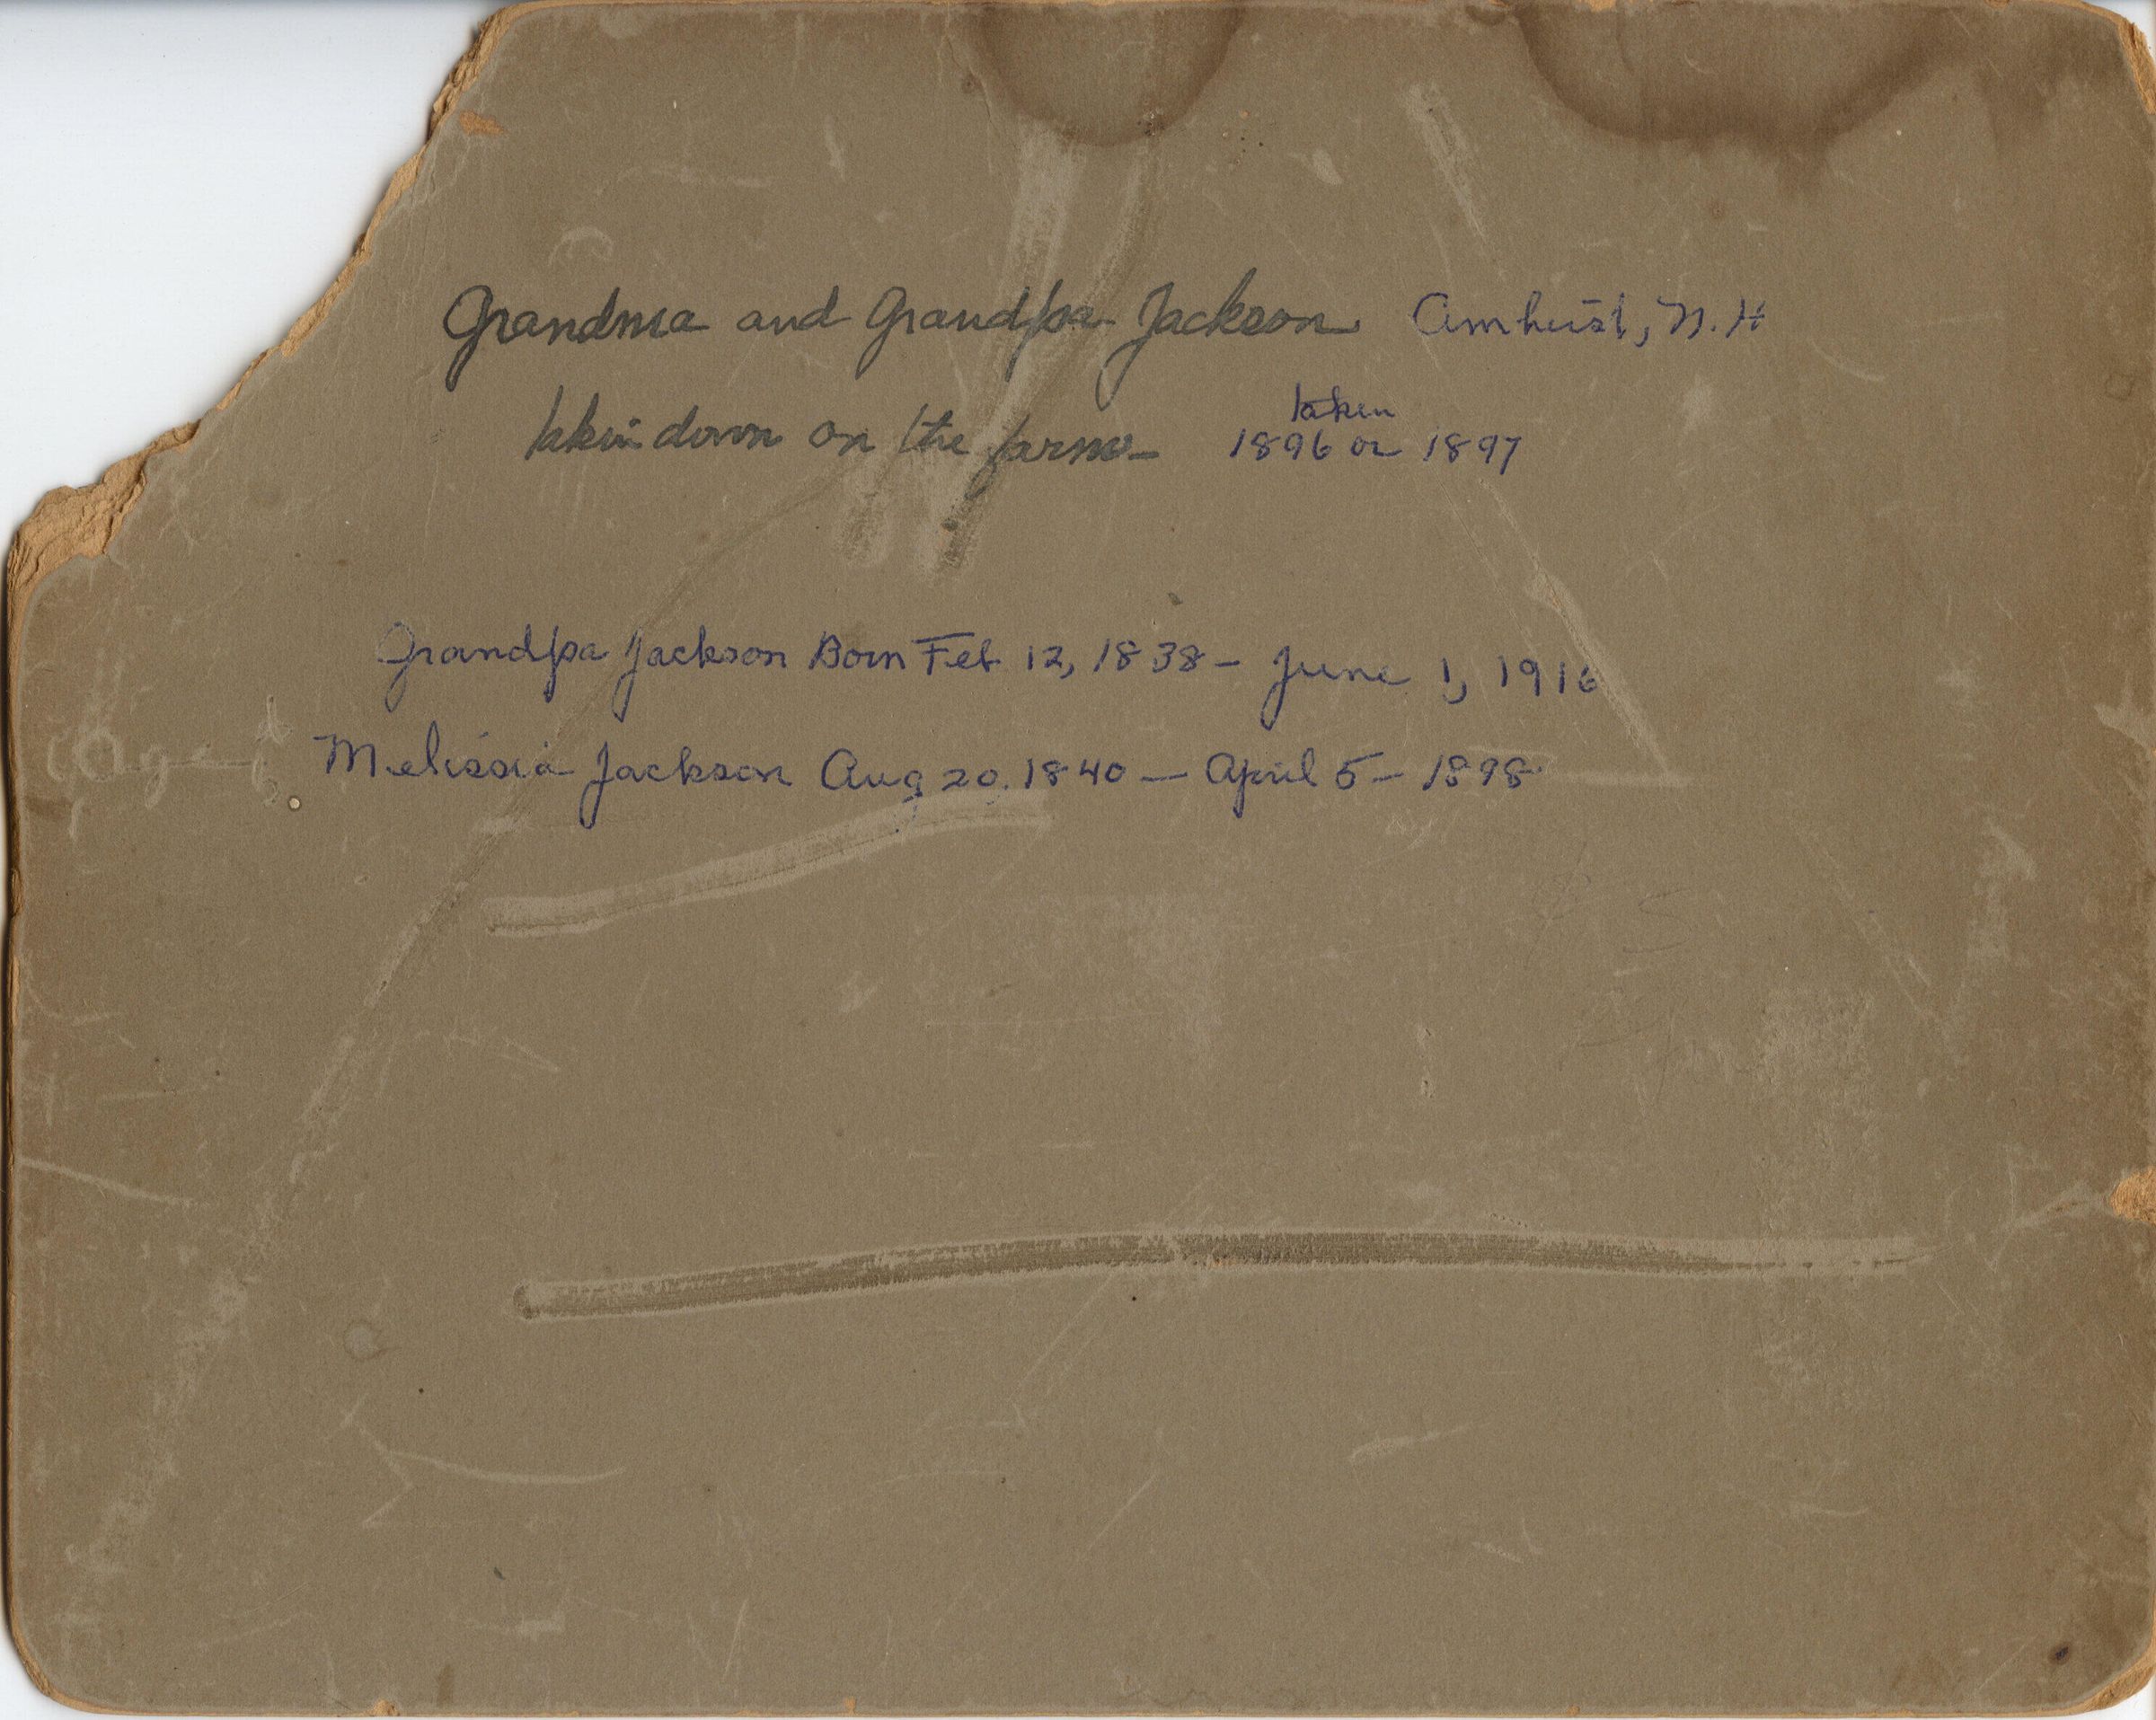 Grandma and Grandpa Jackson Amherst, N.H
taken down on the farm - taken
1896 or 1897
Grandpa Jackson Born Feb 12, 1838 - June 1, 1916
Melissia Jackson Aug 20, 1840 - April 5 - 1898